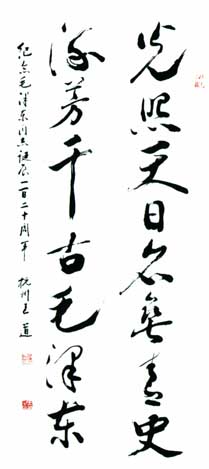 光照天日名垂青史
流芳千古毛泽东
纪念毛泽东同志诞辰一百二十周年 杭州王道